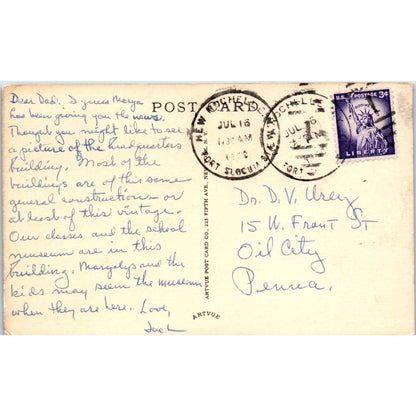 POST CARD
Dear Dad: I guess Marya
has been giving you the news.
Thought you might like to see
a picture of the headquarters
building. Most of the
buildings are of this same
general construction - or
at least of this vintage.
Our classes and the school
museum are in this
building. Marylys and the
kids may seem the museum
when they are here. Love,
Jack
ARTVUE POST CARD CO. 225 FIFTH AVE., NEW
ARTVUE
NEW ROCHELLE
JUL 16
AM
FORT SLOCUM
ROCHELLE
JUL 16
FORT
U.S. POSTAGE 3¢
LIBERTY
Dr. D. V. Urey
15 W. Front St
Oil City
Penna.